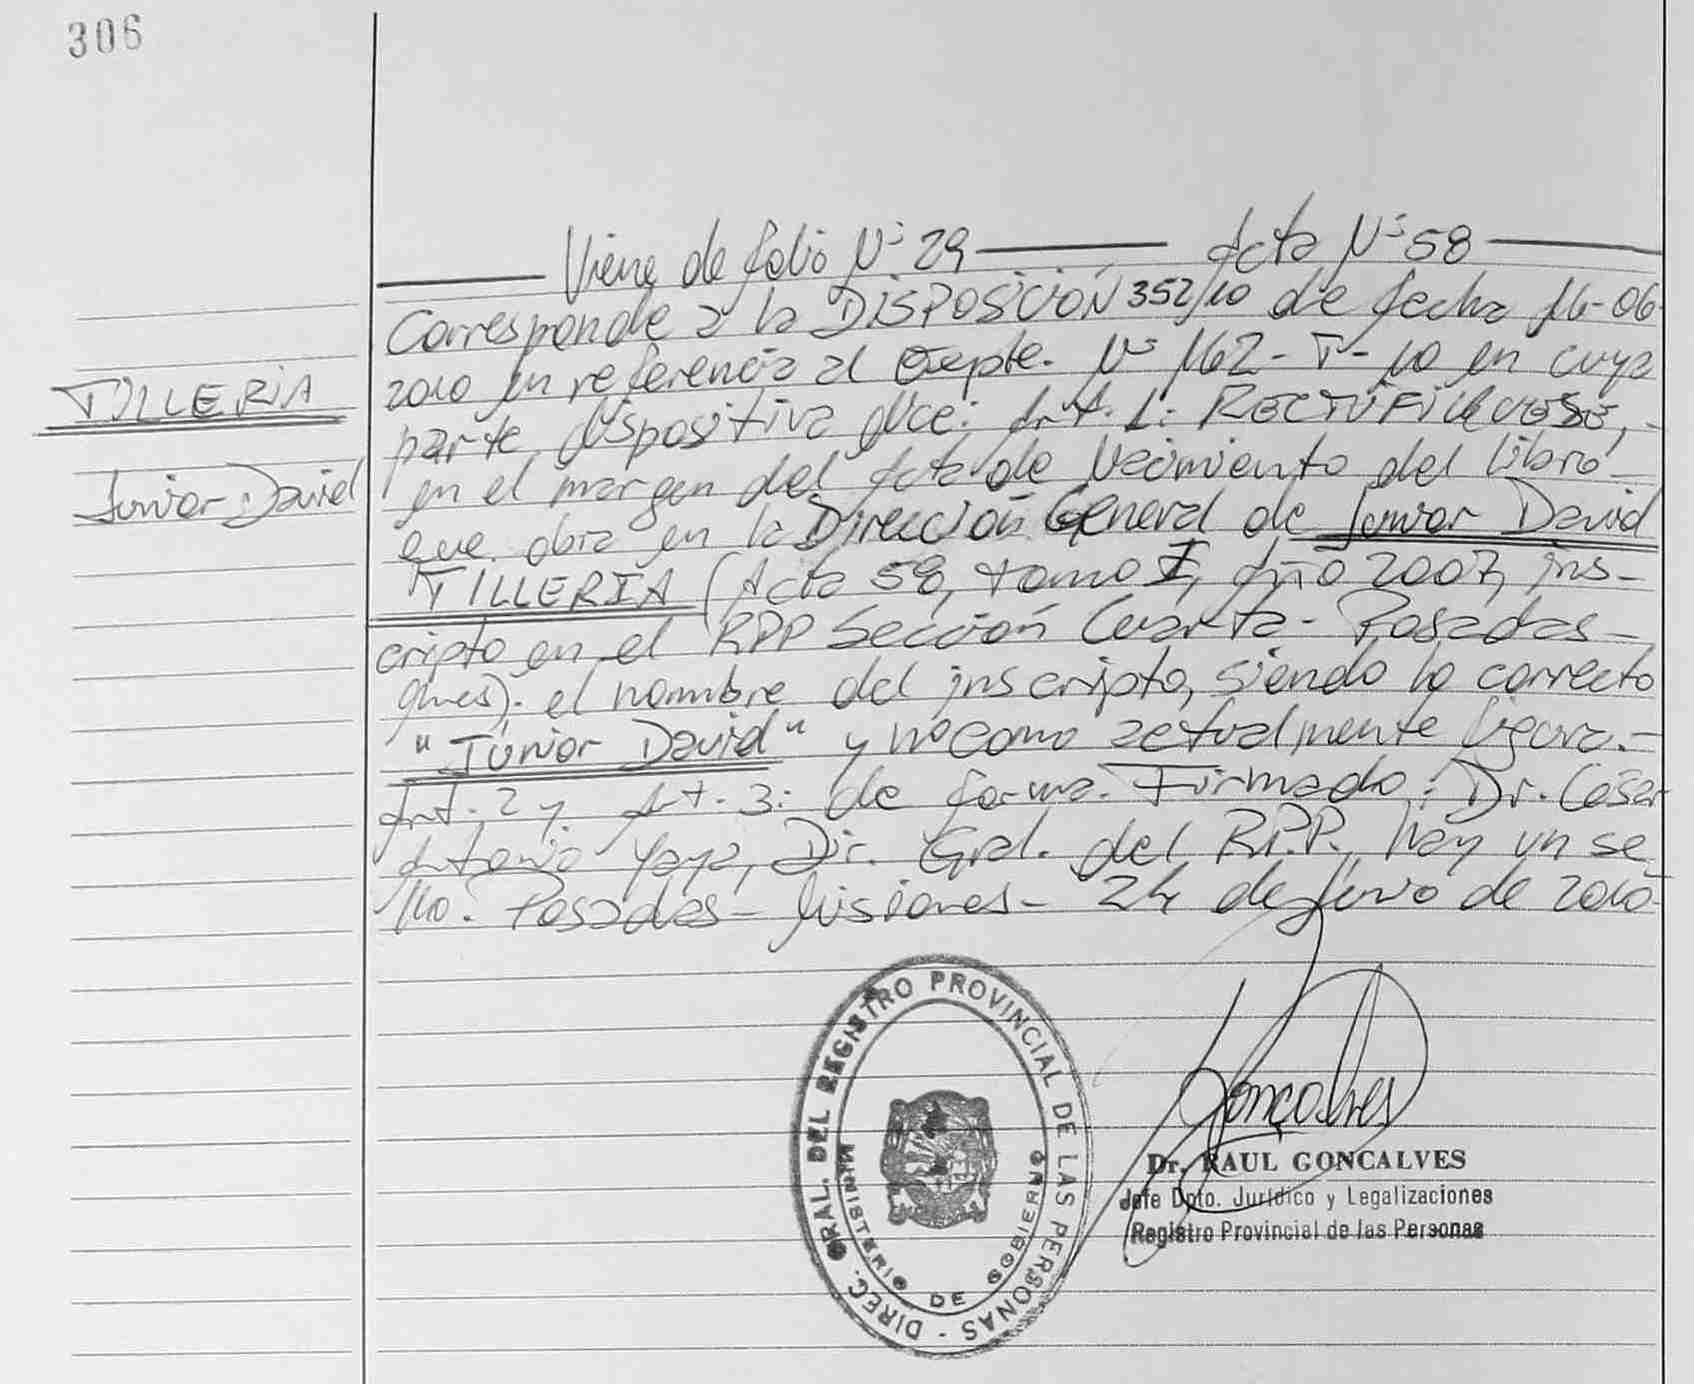 306
Viene de folio N° 29 — Acta N° 58 —
TILLERIA
Junior David
Corresponde a la DISPOSICIÓN 352/10 de fecha 16-06-
2010 en referencia al Expte. N° 162-T-10 en cuya
parte dispositiva dice: Art. 1: RECTIFIQUESE, -
en el margen del Acta de Nacimiento del libro -
que obra en la Dirección General de Junior David
TILLERIA (Acta 58, tomo I, Año 2007, ins-
cripto en el RPP Sección Cuarta - Posadas -
). el nombre del inscripto, siendo lo correcto
"Júnior David" y no como actualmente figura. -
Art. 2 y Art. 3: de forma. Firmado: Dr. César
Antonio Yaya, Dir. Gral. del R.P.P. hay un se-
llo. Posadas - Misiones - 24 de Junio de 2010
DIREC. GRAL. DEL REGISTRO PROVINCIAL DE LAS PERSONAS -
MINISTERIO DE GOBIERNO
Gonçalves
Dr. RAUL GONCALVES
Jefe Dpto. Jurídico y Legalizaciones
Registro Provincial de las Personas